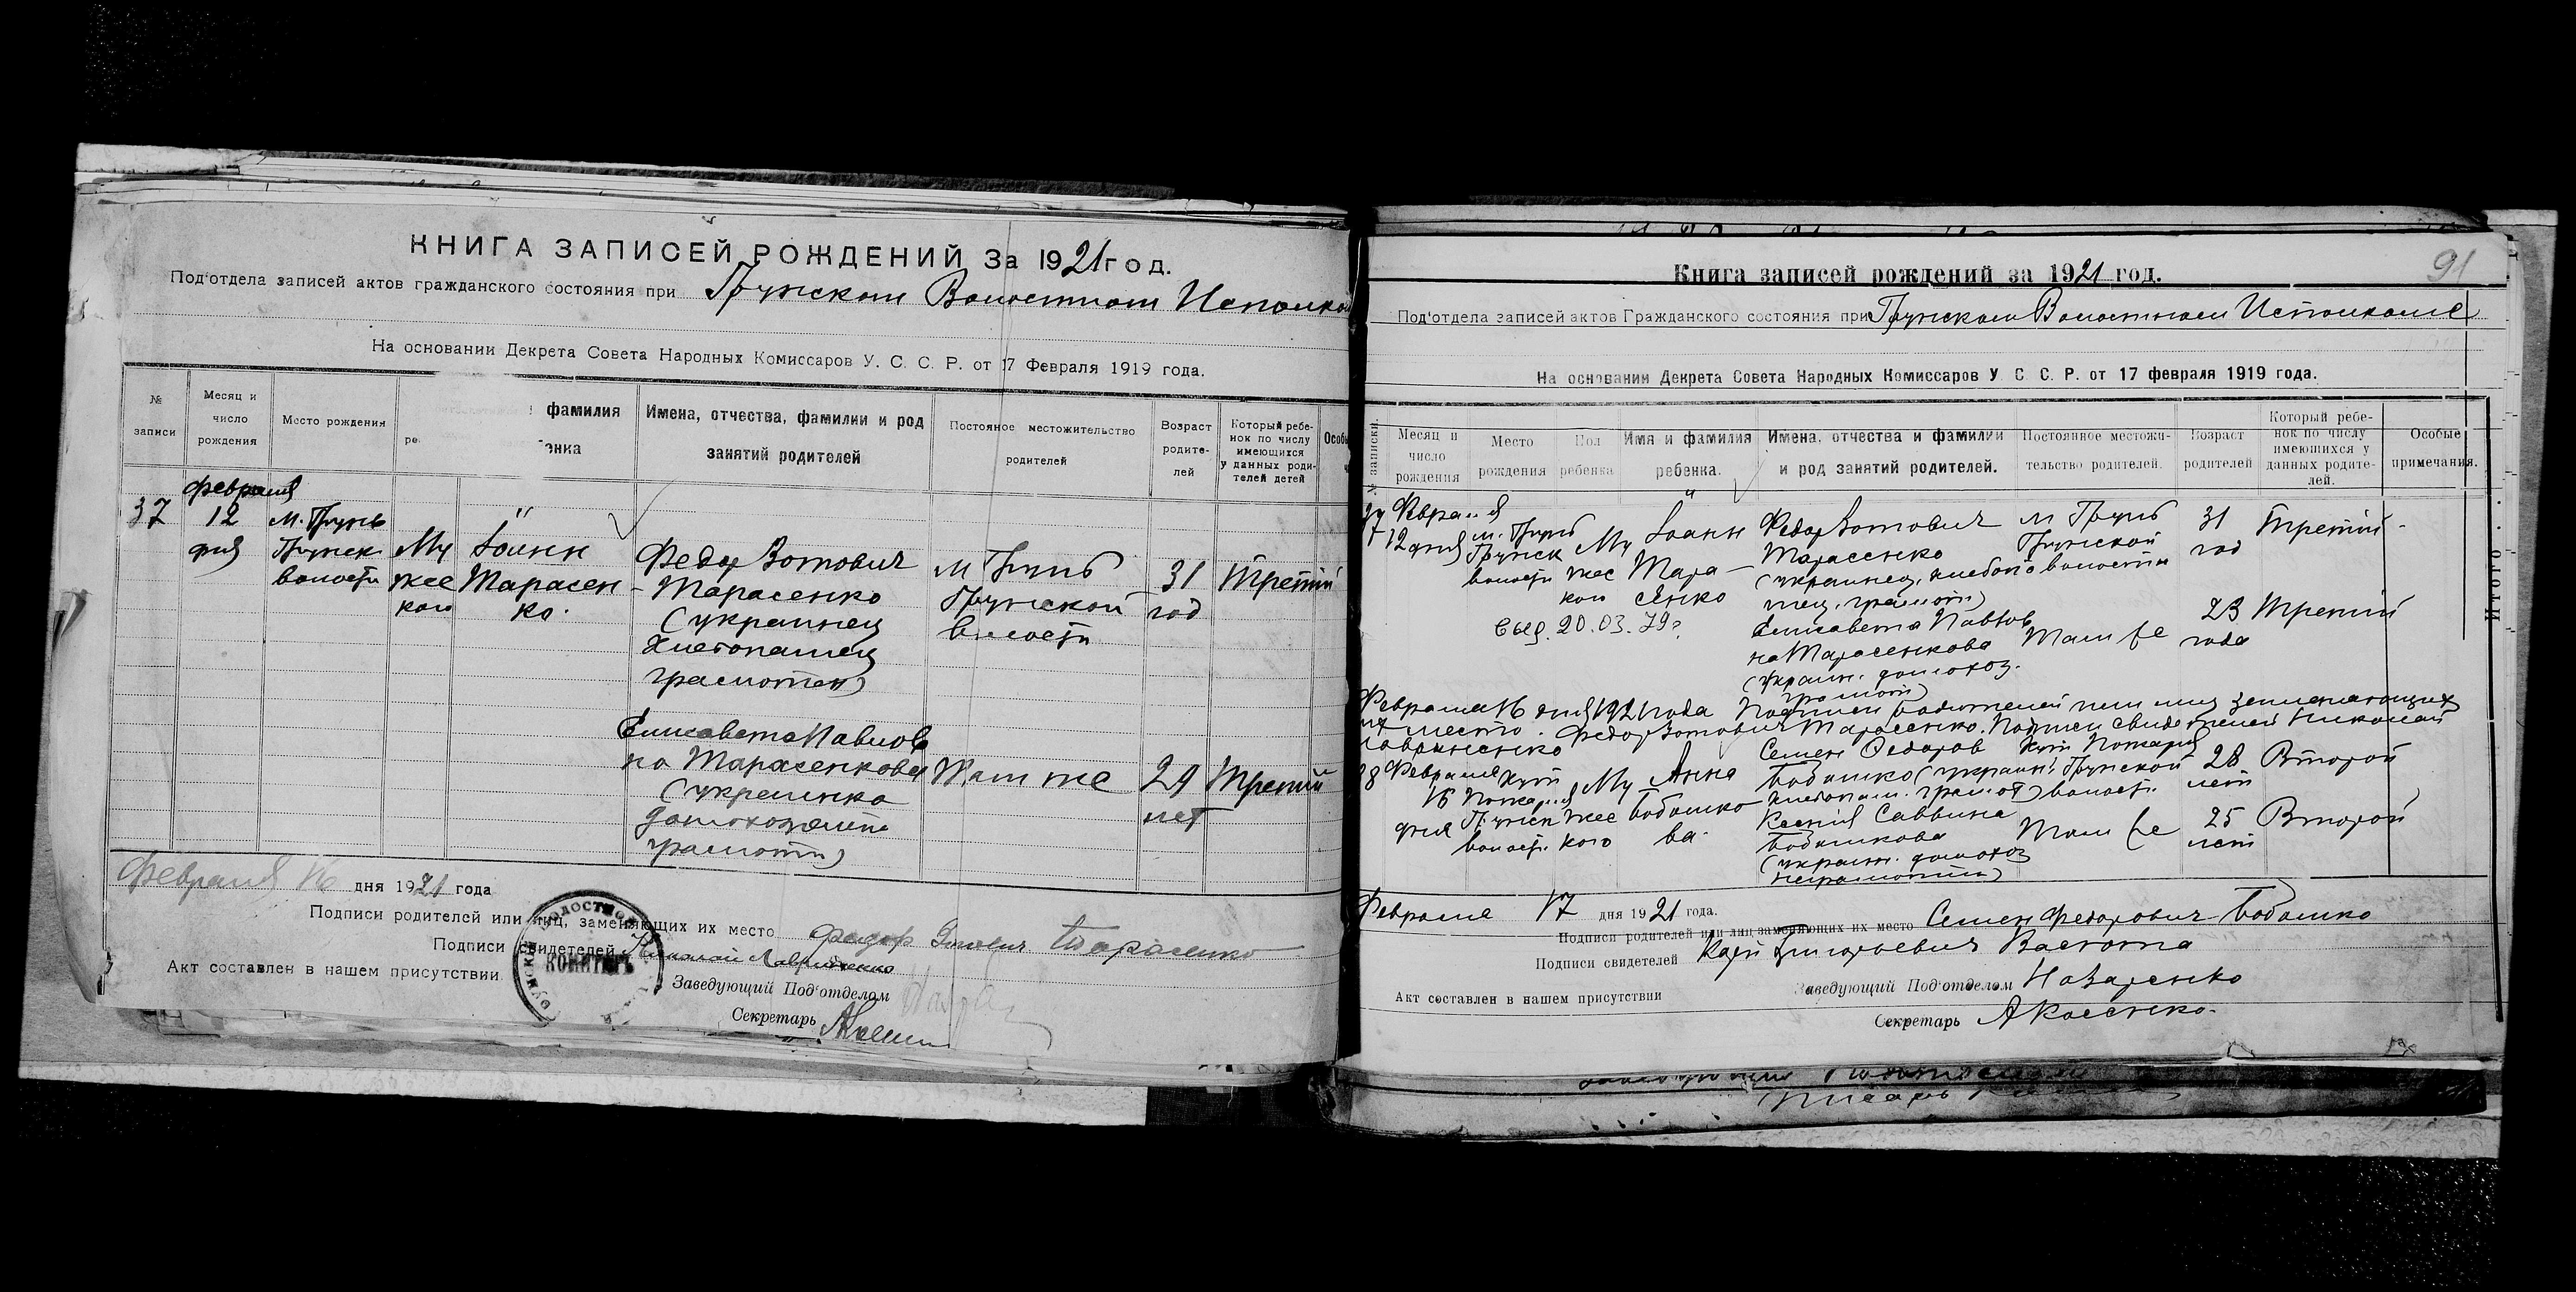 КНИГА ЗАПИСЕЙ РОЖДЕНИЙ За 1921 год.
Под'отдела записей актов гражданского состояния при Грунском Волостном Исполко
На основании Декрета Совета Народных Комиссаров У. С. С. Р. от 17 Февраля 1919 года.
№ записи
Месяц и число рождения
Место рождения
фамилия
Имена, отчества, фамилии и род занятий родителей
Постояное местожительство родителей
Возраст родите-лей
Который ребе-нок по числу имеющихся у данных роди-телей детей
37
Февраля
12
дня
м. Грунь
Грунск
волости
Му
жес
кого
Іоанн
Тарасен
ко.
Федор Зотович
Тарасенко
(украинец
хлебопашец
грамотен)
м Грунь
Грунской
волости
31
год
Третий
Елисавета Павлов
на Тарасенкова
(украинка
домохозяйка
грамотн)
Там же
29
лет
Третий
Февраля 16 дня 1921 года
Подписи родителей или лиц, заменяющих их место Федор Зотович Тарасенко
Подписи свидетелей Николай Лавриненко
Акт составлен в нашем присутствии
КОМИТЕТЪ
Заведующий Под'отделом
Секретарь
91
Книга записей рождений за 1921 год.
Под'отдела записей актов Гражданского состояния при Грунском Волостном Исполкоме
На основании Декрета Совета Народных Комиссаров У. С. С. Р. от 17 февраля 1919 года.
№ записки.
Месяц и число рождения
Место рождения
Пол ребенка
Имя и фамилия ребенка.
Имена, отчества и фамилии и род занятий родителей.
Постоянное местожи-тельство родителей.
Возраст родителей
Который ребе-нок по числу имеющихся у данных родите-лей.
Особые примечания.
Итого
Февраля
12 дня
м. Грунь
Грунск
волости
Му
жес
кого
Іоанн
Тара-
сенко
Федор Зотович
Тарасенко
(украинец, хлебопа
шец, грамотн)
м Грунь
Грунской
волости
31
год
Третий
выд. 20.03.79г
Елисавета Павлов
на Тарасенкова
(украин. домохоз.
грамотн)
Там же
23
года
Третий
Февраля 16 дня 1921 года Подписи родителей или лиц заменяющих
их место. Федор Зотович Тарасенко. Подписи свидетелей Николай
Лавриненко
Февраля
16
дня
хут
Грунск
волости.
Му
жес
кого
Анна
Бобошко
ва.
Семен Федоров
Бобошко (украин.
хлебопаш. грамот)
Грунской
волости.
28
лет
Второй
Ксения Саввина
Бобошкова
(украин. домохоз
неграмотн)
Там же
25
лет
Второй
Февраля 17 дня 1921 года.
Подписи родителей или лиц заменяющих их место Семен Федорович Бобошко
Подписи свидетелей Григорьевич
Акт составлен в нашем присутствии
Заведующий Под'отделом Назаренко
Секретарь